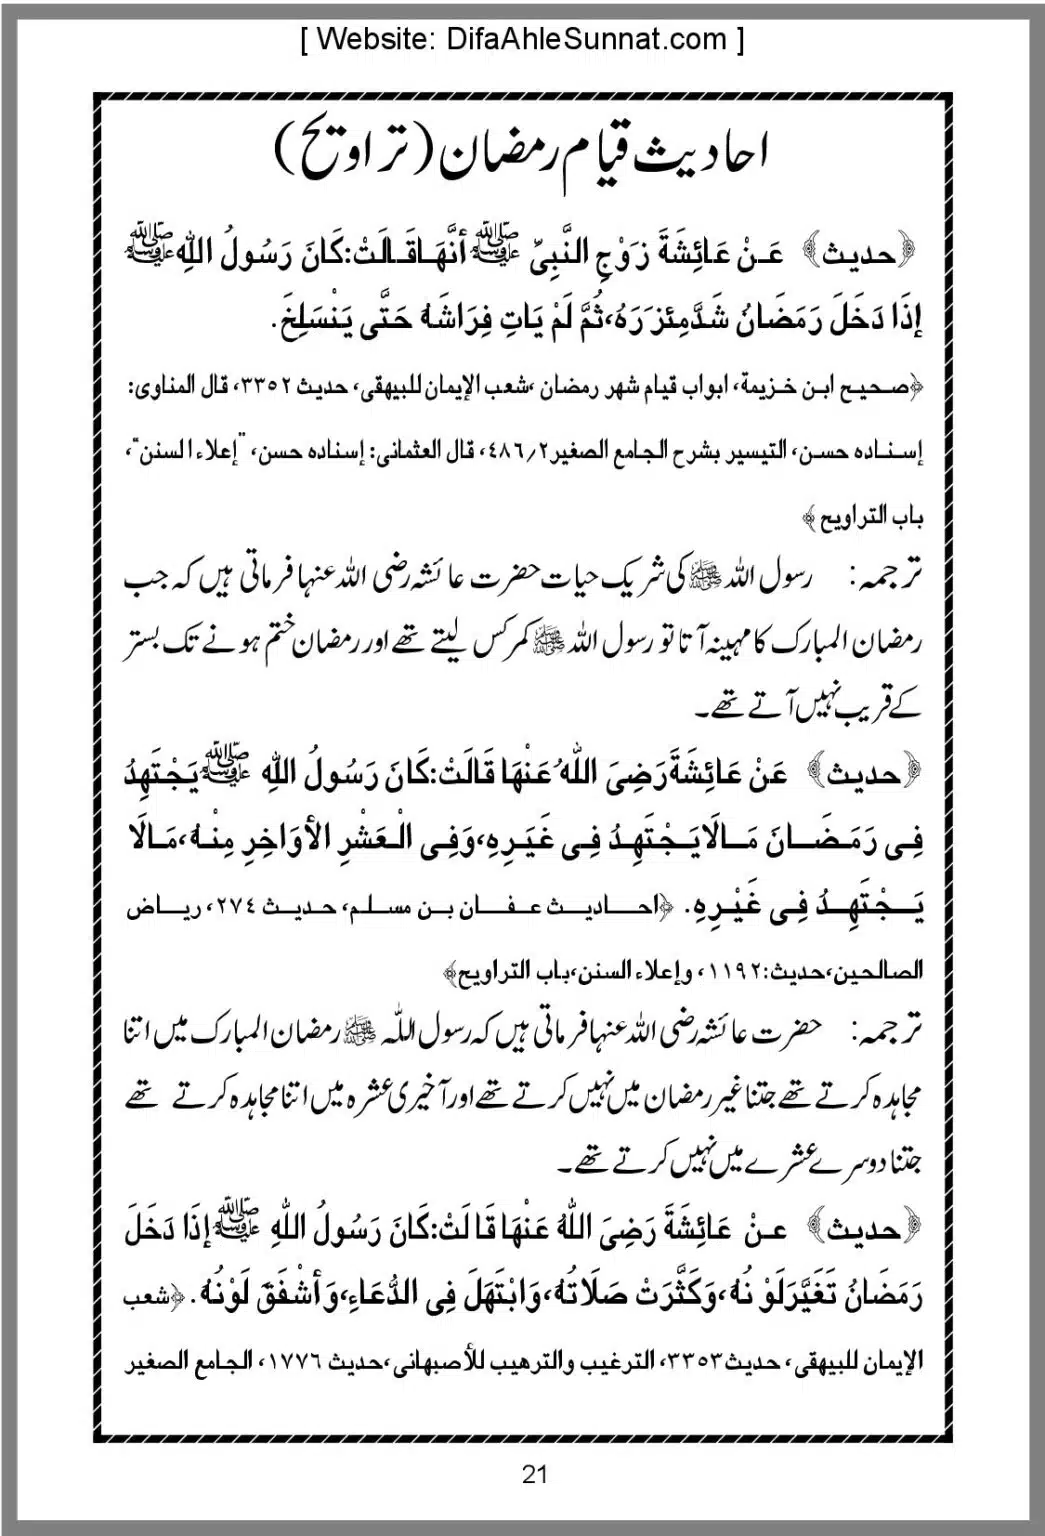 [ Website: DifaAhleSunnat.com ]
احادیث قیام رمضان (تراویح)
﴿حدیث﴾ عَنْ عَائِشَةَ زَوْجِ النَّبِیِّ ﷺ أَنَّهَا قَالَتْ:کَانَ رَسُولُ اللهِ ﷺ
إِذَا دَخَلَ رَمَضَانُ شَدَّ مِئْزَرَهُ،ثُمَّ لَمْ یَاتِ فِرَاشَهُ حَتَّی یَنْسَلِخَ.
﴿صحیح ابن خزیمة، ابواب قیام شهر رمضان ،شعب الإیمان للبیهقی، حدیث ۳۳۵۲، قال المناوی:
إسناده حسن، التیسیر بشرح الجامع الصغیر۲/۴۸٦، قال العثمانی: إسناده حسن، "إعلاء السنن"،
باب التراویح﴾
ترجمہ: رسول اللہ ﷺ کی شریک حیات حضرت عائشہ رضی اللہ عنہا فرماتی ہیں کہ جب
رمضان المبارک کا مہینہ آتا تو رسول اللہ ﷺ کمر کس لیتے تھے اور رمضان ختم ہونے تک بستر
کے قریب نہیں آتے تھے۔
﴿حدیث﴾ عَنْ عَائِشَةَ رَضِیَ اللهُ عَنْهَا قَالَتْ:کَانَ رَسُولُ اللهِ ﷺ یَجْتَهِدُ
فِی رَمَضَانَ مَالَا یَجْتَهِدُ فِی غَیَرِهِ،وَفِی الْعَشْرِ الأوَاخِرِ مِنْهُ،مَالَا
یَجْتَهِدُ فِی غَیْرِهِ. ﴿احادیث عفان بن مسلم، حدیث ۲۷۴، ریاض
الصالحین،حدیث:۱۱۹۲، وإعلاء السنن،باب التراویح﴾
ترجمہ: حضرت عائشہ رضی اللہ عنہا فرماتی ہیں کہ رسول اللہ ﷺ رمضان المبارک میں اتنا
مجاہدہ کرتے تھے جتنا غیر رمضان میں نہیں کرتے تھے اور آخیری عشرہ میں اتنا مجاہدہ کرتے تھے
جتنا دوسرے عشرے میں نہیں کرتے تھے۔
﴿حدیث﴾ عنْ عَائِشَةَ رَضِیَ اللهُ عَنْهَا قَالَتْ:کَانَ رَسُولُ اللهِ ﷺ إِذَا دَخَلَ
رَمَضَانُ تَغَیَّرَ لَوْنُهُ،وَکَثَّرَتْ صَلَاتُهُ،وَابْتَهَلَ فِی الدُّعَاءِ،وَأَشْفَقَ لَوْنُهُ. ﴿شعب
الإیمان للبیهقی، حدیث۳۳۵۳، الترغیب والترهیب للأصبهانی،حدیث ۱۷۷٦، الجامع الصغیر
21